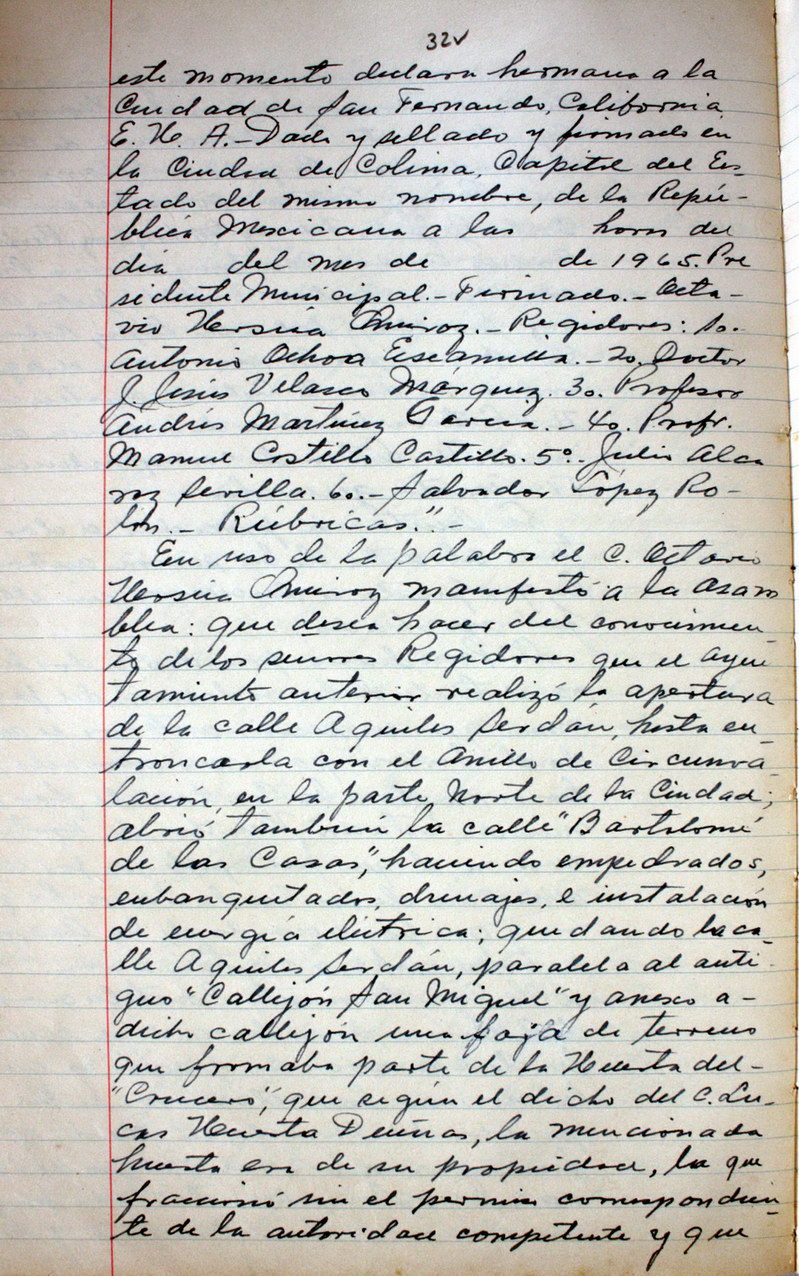 32v
este momento declara hermana a la
Ciudad de San Fernando, California,
E. U. A.- Dado y sellado y firmado en
la Ciudad de Colima, Capital del Es-
tado del mismo nombre, de la Repú-
blica Mexicana a las horas del
día del mes de de 1965. Pre
sidente Municipal.- Firmado.- Octa-
vio Quiroz.- Regidores: 1o.
Antonio Ochoa Escamilla.- 2o. Doctor
J. Jesús Velasco Márquez. 3o. Profesor
Andrés Martínez García.- 4o. Profr.
Manuel Costillo Castillo. 5º.- Julio Alca
raz Sevilla. 6o.- Salvador López Ro-
lón.- Rúbricas."-
En uso de la palabra el C. Octavio
Quiroz manifestó a la asam
blea: que desea hacer del conocimien
to de los señores Regidores que el ayun
tamiento anterior realizó la apertura
de la calle Aquiles Serdán, hasta en-
troncarla con el Anillo de Circunva-
lación, en la parte Norte de la Ciudad;
abrió también la calle "Bartolomé
de las Casas", haciendo empedrados,
enbanquetados, drenajes, e instalación
de energía eléctrica; quedando la ca-
lle Aquiles Serdán, paralela al anti-
guo "Callejón San Miguel" y anexo a-
dicho callejón una faja de terreno
que fromaba parte de la Huerta del-
"Crucero", que según el dicho del C. Lu-
cas Huerta Dueñas, la mencionada
huerta era de su propiedad, la que
fraccionó sin el permiso correspondien-
te de la autoridad competente y que